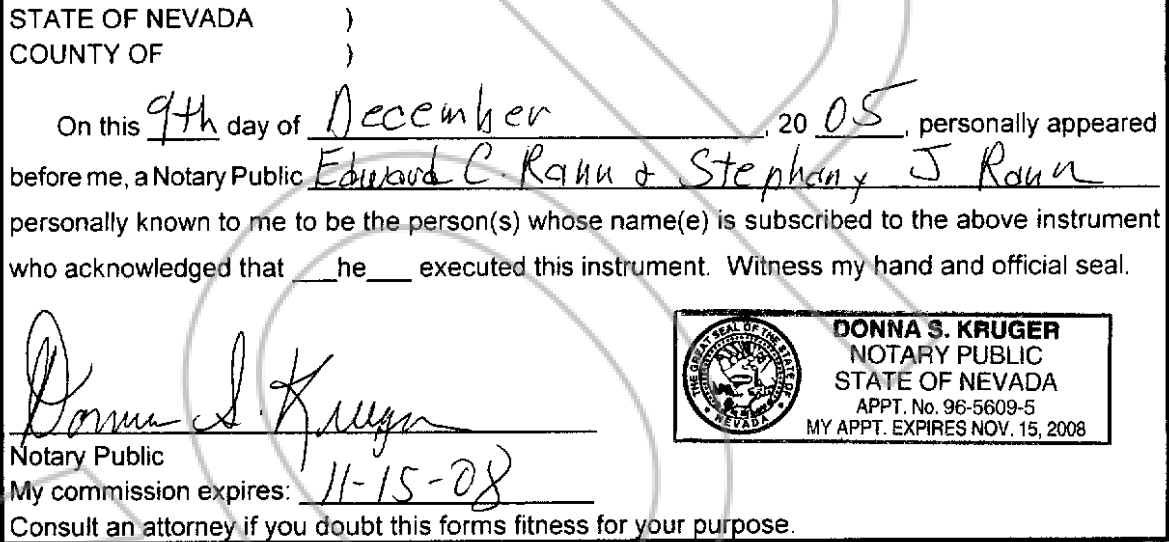 STATE OF NEVADA )
COUNTY OF )
On this 9th day of December, 20 05, personally appeared
before me, a Notary Public Edward C. Rann & Stephany J Rann
personally known to me to be the person(s) whose name(e) is subscribed to the above instrument
who acknowledged that __he__ executed this instrument. Witness my hand and official seal.
Donna S. Kruger
THE GREAT SEAL OF THE STATE OF NEVADA
DONNA S. KRUGER
NOTARY PUBLIC
STATE OF NEVADA
APPT. No. 96-5609-5
MY APPT. EXPIRES NOV. 15, 2008
Notary Public
My commission expires: 11-15-08
Consult an attorney if you doubt this forms fitness for your purpose.